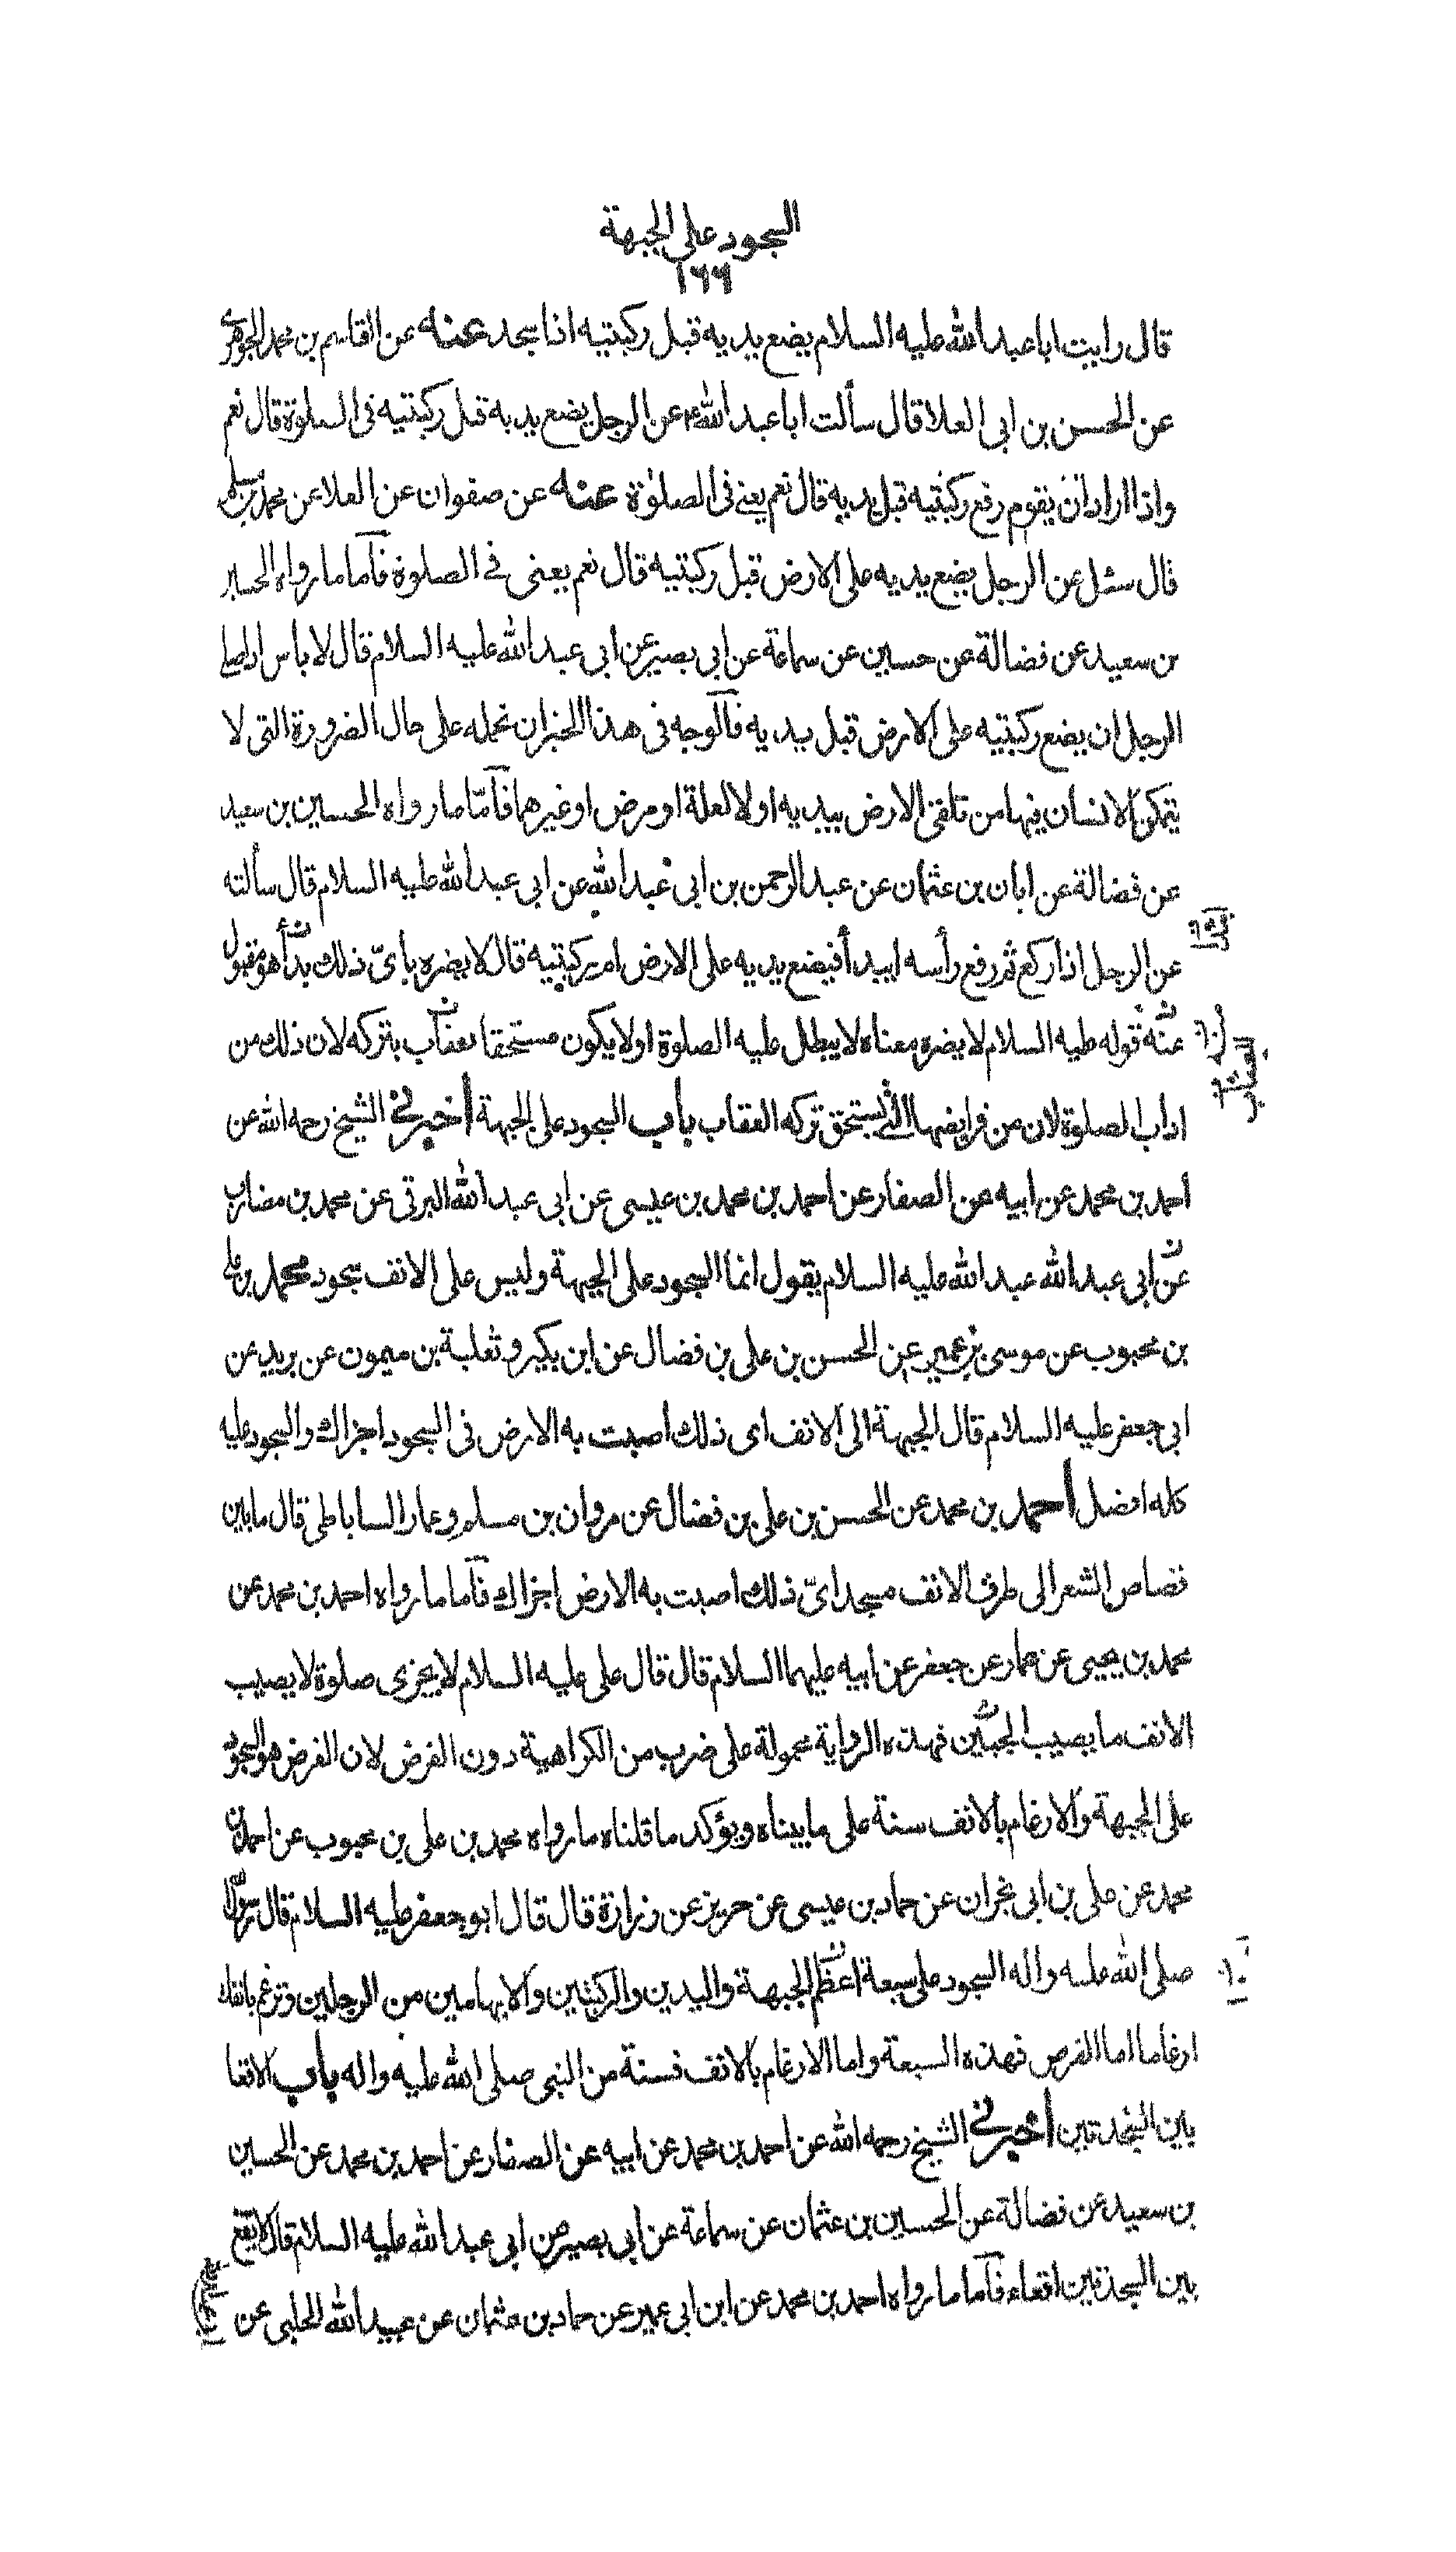 السجود على الجبهة
١٦٦
قال رايت ابا عبد الله عليه السلام يضع يديه قبل ركبتيه اذا سجد عنه عن القاسم بن محمد الجوهرى
عن الحسن بن ابى العلا قال سألت ابا عبد الله ع عن الرجل يضع يديه قبل ركبتيه فى الصلوة قال نعم
واذا اراد ان يقوم رفع ركبتيه قبل يديه قال نعم يعنى فى الصلوة عنه عن صفوان عن العلا عن محمد بن مسلم
قال سئل عن الرجل يضع يديه على الارض قبل ركبتيه قال نعم يعنى فى الصلوة فاما ما رواه الحسين
بن سعيد عن فضالة عن حسين عن سماعة عن ابى بصير عن ابى عبد الله عليه السلام قال لا باس اذا صلى
الرجل ان يضع ركبتيه على الارض قبل يديه فالوجه فى هذا الخبر ان نحمله على حال الضرورة التى لا
يتمكن الانسان فيها من تلقى الارض بيديه اولا لعلة او مرض او غيرهما فامّا ما رواه الحسين بن سعيد
عن فضالة عن ابان بن عثمان عن عبد الرحمن بن ابى عبد الله عن ابى عبد الله عليه السلام قال سألته
عن الرجل اذا ركع ثم رفع رأسه ايبدأ فيضع يديه على الارض ام ركبتيه قال لا يضره باىّ ذلك بدأ هو مقبول
عنه قوله عليه السلام لا يضره معناه لا يبطل عليه الصلوة او لا يكون مستحقا لعقاب بتركه لان ذلك من
اداب الصلوة لان من فرايضها التى يستحق تركه العقاب باب السجود على الجبهة أخبرنى الشيخ رحمه الله عن
احمد بن محمد عن ابيه عن الصفار عن احمد بن محمد بن عيسى عن ابى عبد الله البرقى عن محمد بن مضارب
عن ابى عبد الله عبد الله عليه السلام يقول انما السجود على الجبهة وليس على الانف سجود محمد بن على
بن محبوب عن موسى بن عمير عن الحسن بن على بن فضال عن ابن بكير و ثعلبة بن ميمون عن بريد عن
ابى جعفر عليه السلام قال الجبهة الى الانف اى ذلك أصبت به الارض فى السجود اجزاك والسجود عليه
كله افضل أحمد بن محمد عن الحسن بن على بن فضال عن مروان بن مسلم وعمار الساباطى قال ما بين
قصاص الشعر الى طرف الانف مسجد اىّ ذلك اصبت به الارض اجزاك فاما ما رواه احمد بن محمد عن
محمد بن يحيى عن عمار عن جعفر عن ابيه عليهما السلام قال قال على عليه السلام لا يجزى صلوة لا يصيب
الانف ما يصيب الجبين فهذه الرواية محمولة على ضرب من الكراهية دون الفرض لان الفرض هو السجود
على الجبهة والارغام بالانف سنة على ما بيناه ويؤكد ما قلناه ما رواه محمد بن على بن محبوب عن احمد بن
محمد عن على بن ابى نجران عن حماد بن عيسى عن حريز عن زرارة قال قال ابو جعفر عليه السلام قال رسول الله
صلى الله عليه واله السجود على سبعة اعظم الجبهة واليدين والركبتين والابهامين من الرجلين وترغم بانفك
ارغاما اما الفرض فهذه السبعة واما الارغام بالانف فسنة من النبى صلى الله عليه واله باب الاقعا
بين السجدتين أخبرنى الشيخ رحمه الله عن احمد بن محمد عن ابيه عن الصفار عن احمد بن محمد عن الحسين
بن سعيد عن فضالة عن الحسين بن عثمان عن سماعة عن ابى بصير عن ابى عبد الله عليه السلام قال لا يقع
بين السجدتين اقعاء فاما ما رواه احمد بن محمد عن ابن ابى عمير عن حماد بن عثمان عن عبيد الله الحلبى عن